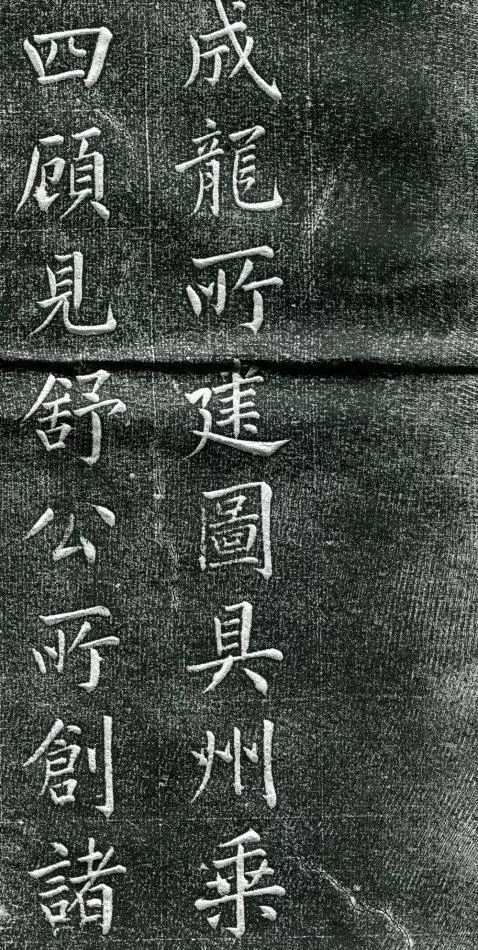 成龍所建圖具州乗
四顧見舒公所創諸